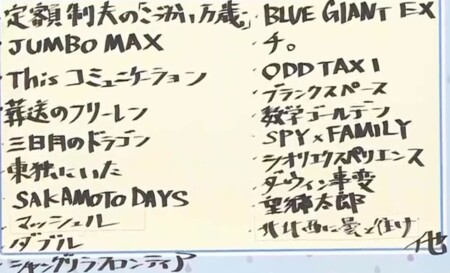 定額制夫の「こづかい万歳」
JUMBO MAX
Thisコミュニケーション
葬送のフリーレン
三日月のドラゴン
東独にいた
SAKAMOTO DAYS
マッシュル
ダブル
シャングリラフロンティア
BLUE GIANT EX
チ。
ODD TAXI
ブランクスペース
数学ゴールデン
SPY×FAMILY
シオリエクスペリエンス
ダーウィン事変
望郷太郎
北北西に曇と往け
他